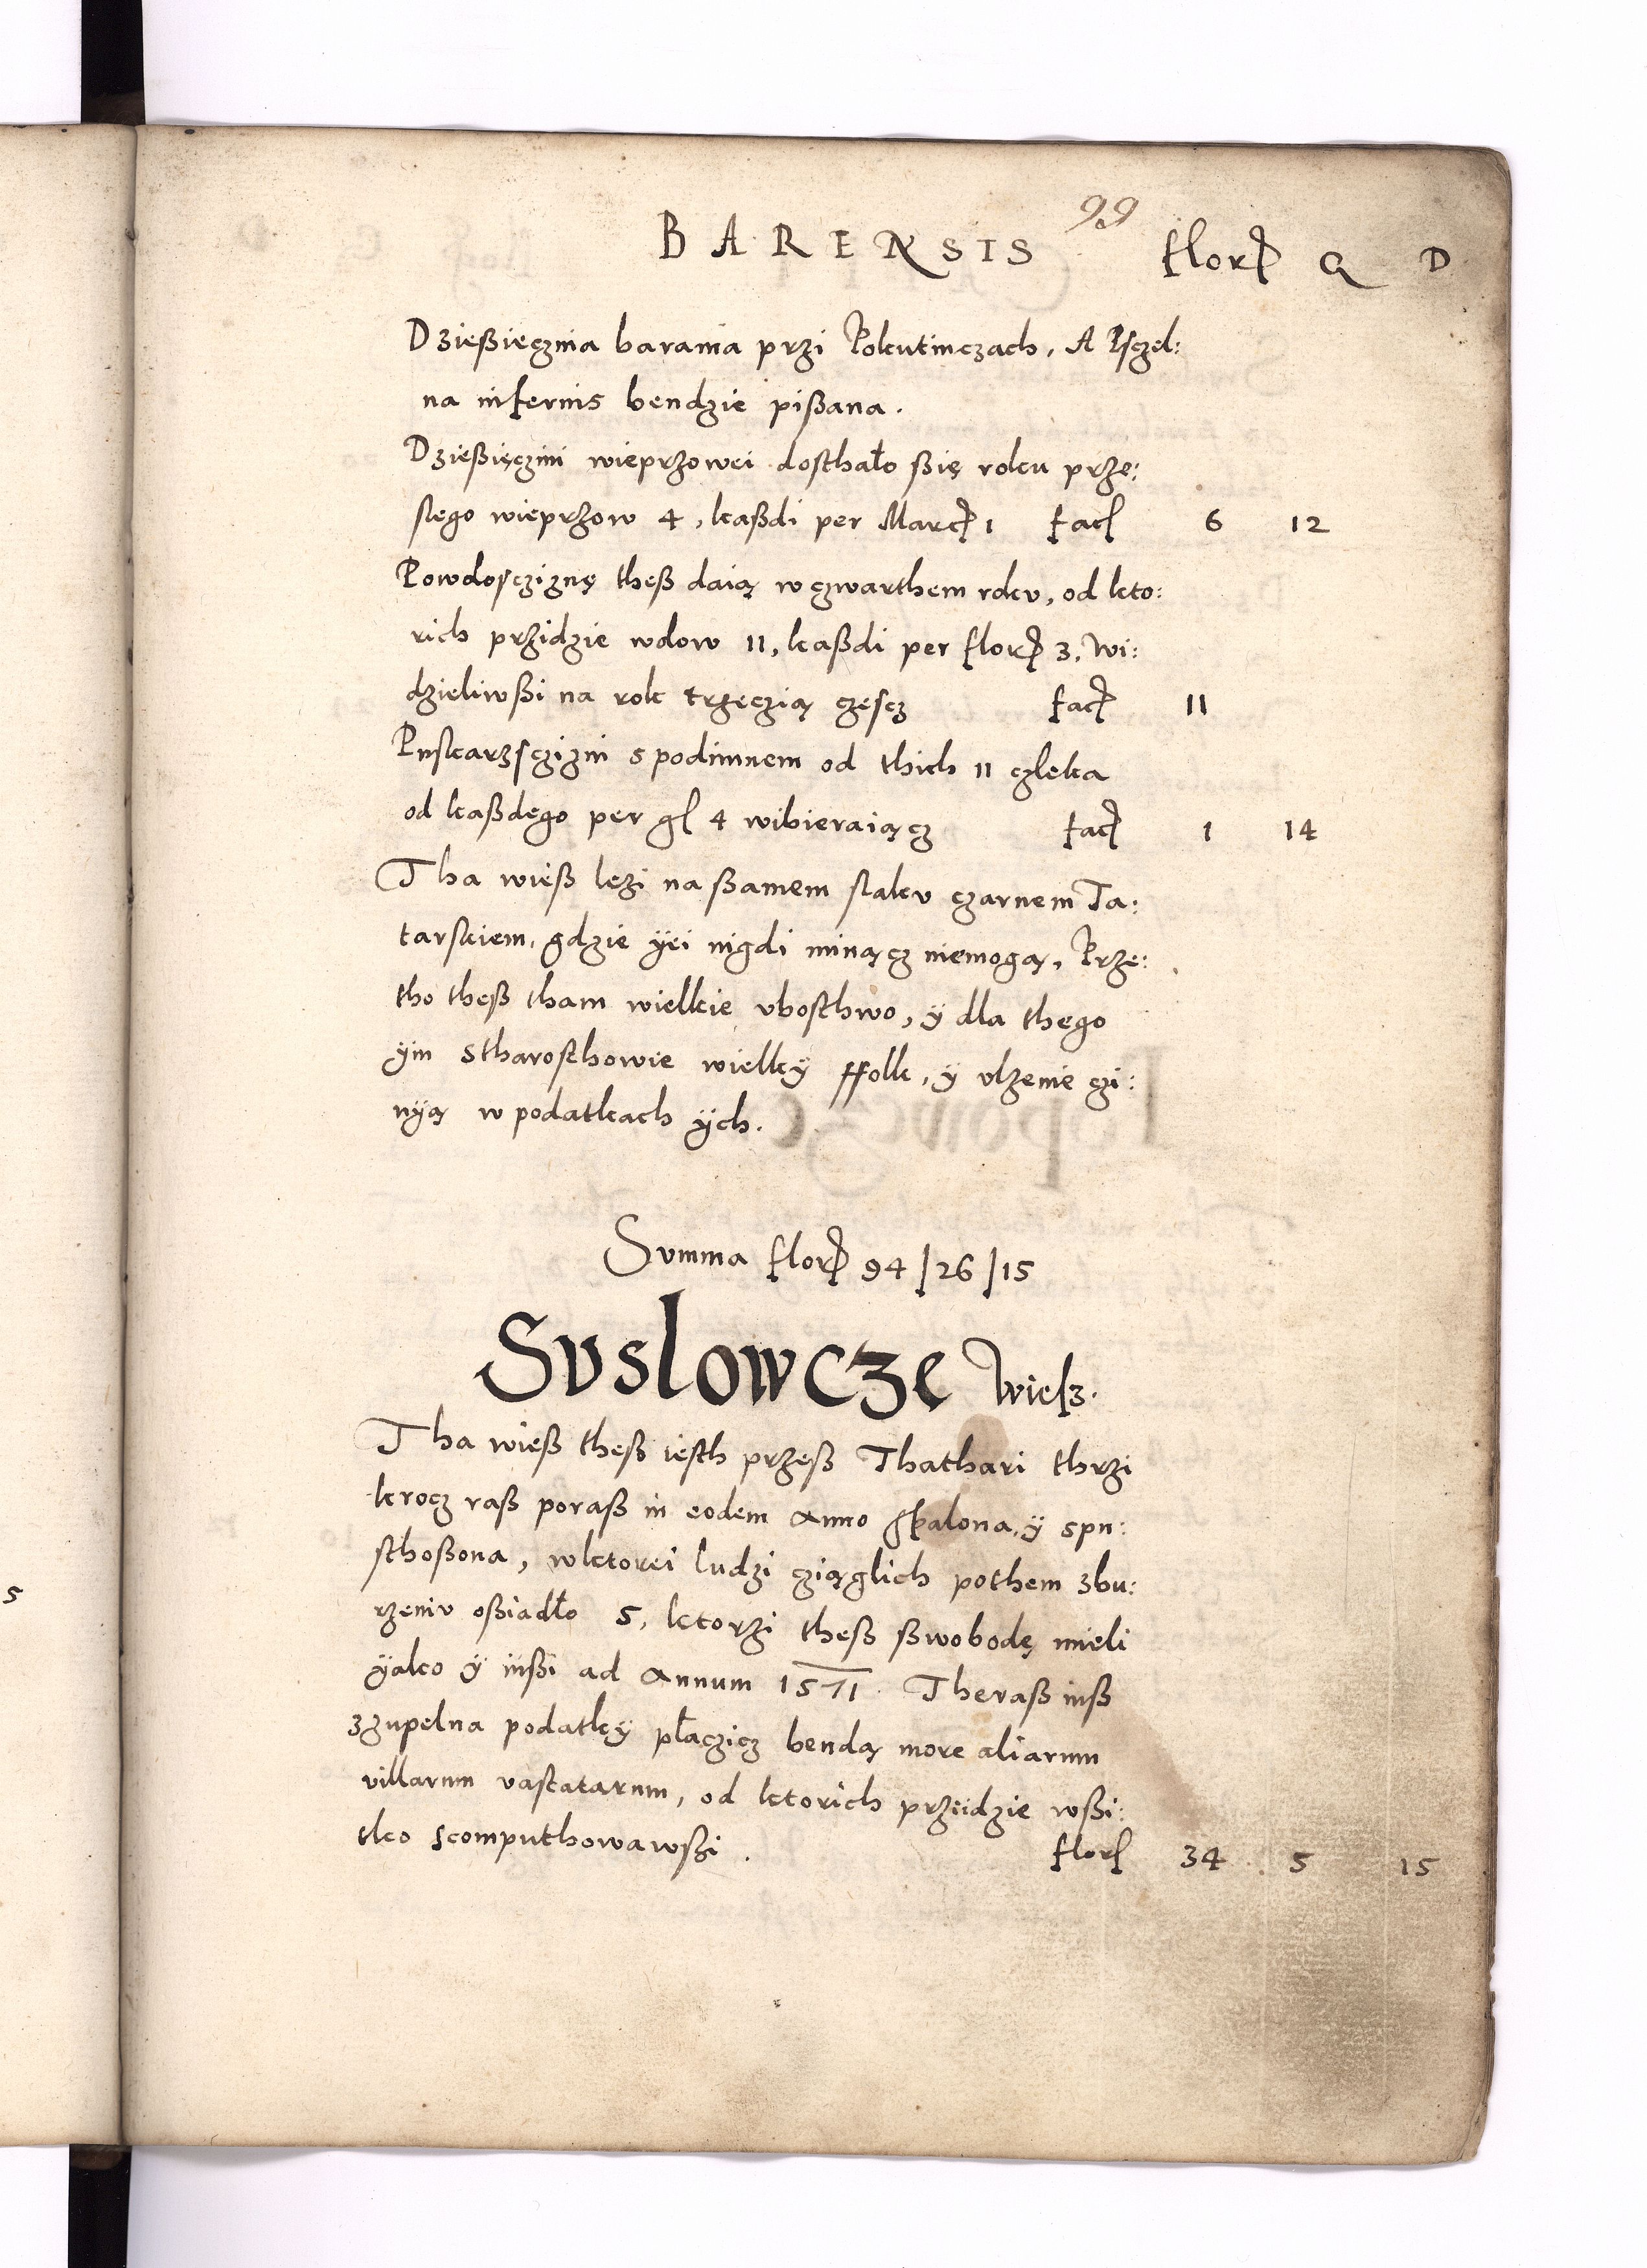 99
BARENSIS florȝ G D
Dzießięczina barania przi Pokutinczach, A Psczel:
na infernis bendzie pißana.
Dzießięczini wieprzowei dosthało ßię roku prze:
slego wieprzow 4, kaßdi per March 1 fac 6 12
Powdosczęiznę theß daią w czwarthem roku, od kto:
rich przidzie wdow 11, kaßdi per flor 3. wi:
dzieliwßi na rok trzeczią częscz fac 11
Puskarzsczizni s podimnem od thich 11 czleka
od kaßdego per gl 4 wibieraiącz fac 1 14
Tha wieß lezi na ßamem slaku czarnem Ta:
tarskiem, gdzie ÿei nigdi minącz niemogą, Prze:
tho theß tham wielkie vbosthwo, ÿ dla thego
ÿm Stharosthowie wielkÿ ffolk, ÿ vlzenie czi:
nÿą w podatkach ÿch.
Summa flor 94/26/15
Suslowcze wiesz.
Tha wieß theß iesth przeß Thathari thrzi
krocz raß poraß in eodem Anno spalona, ÿ spu:
sthoßona, w ktorei ludzi cziąglich pothem zbu:
rzeniu oßiadło 5, ktorzi theß ßwobodę mieli
ÿako ÿ inßi ad Annum 1571. Theraß inß
zzupelna podatkÿ płaczicz bendą more aliarum
villarum vastatarum, od ktorich przÿidzie wßi:
tko scomputhowawßi. flor 34 5 15
5